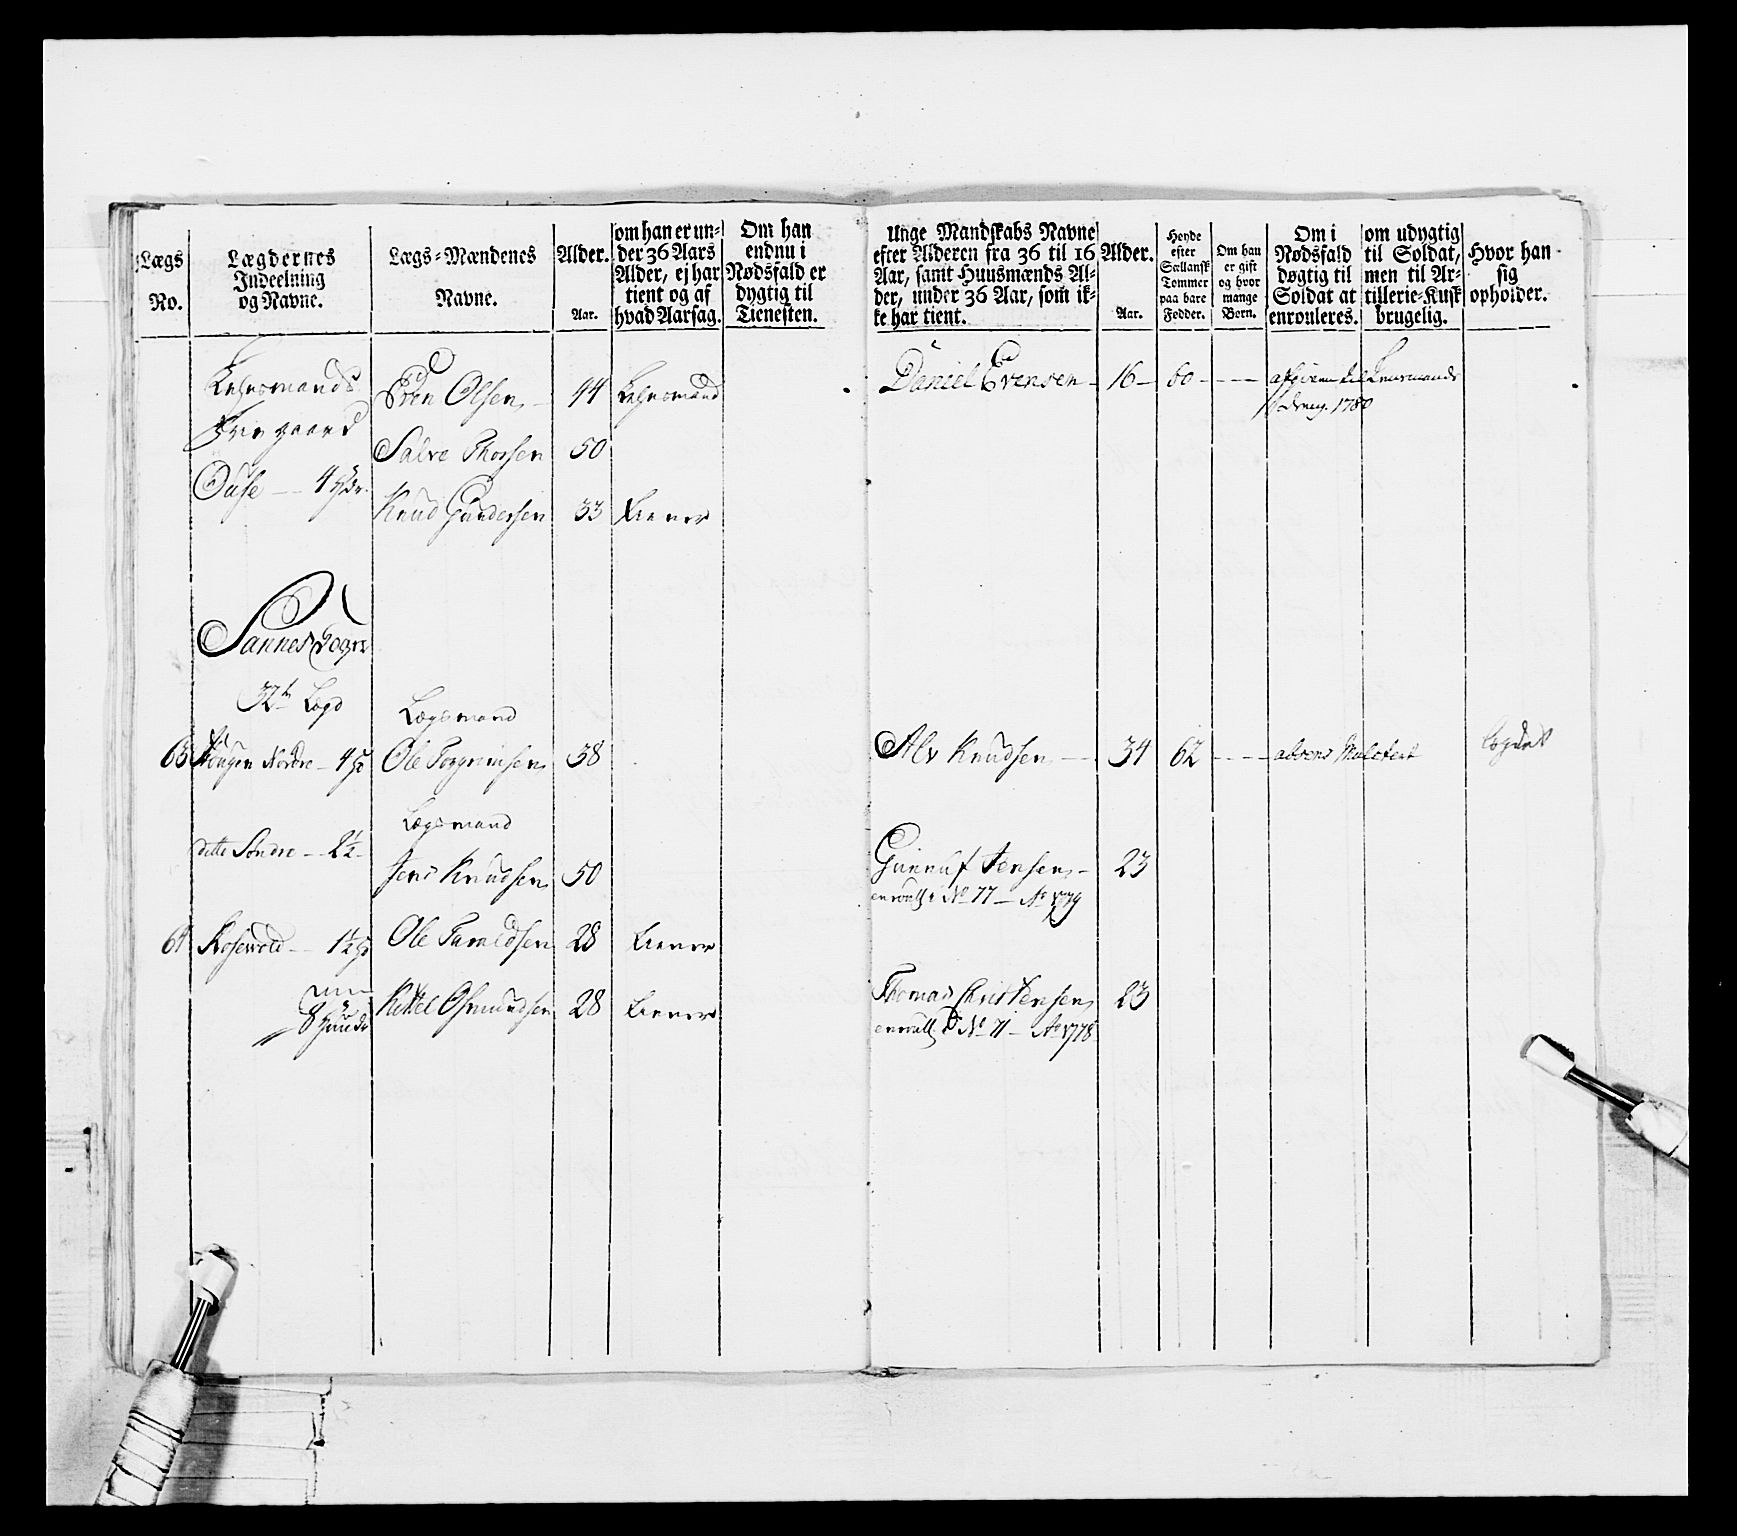 Lægs
No.
Lægdernes
Indeelning
og Navne.
Lægs-Mændenes
Navne.
Alder.
Aar.
om han er un-
der 36 Aars
Alder, ej har
tient og af
hvad Aarsag.
Om han
endnu i
Nødsfald er
dygtig til
Tienesten.
Unge Mandskabs Navne
efter Alderen fra 36 til 16
Aar, samt Huusmænds Al-
der, under 36 Aar, som ik-
ke har tient.
Alder.
Aar.
Høyde
efter
Siellansk
Tommer
paa bare
Fødder.
Om han
er gift
og hvor
mange
Børn.
Om i
Nødsfald
døgtig til
Soldat at
enrouleres.
om udygtig
til Soldat,
men til Ar-
tillerie-Kusk
brugelig.
Hvor han
sig
opholder.
Lehnsmands
Frie gaard
Duse 4
Even Olsen 44 Lehnsmand
Salve Thorsen 50
Knud Gundersen 33
Daniel Evensen 16 60
1780
Sannes Sogn
32te Lægd
Lægsmand
63 Hougen Nordre 4
Ole Torgrimsen 38
Alv Knudsen 34 62
Lægdet
dette Søndre 2½
Lægsmand
Jens Knudsen 50
Gunnuf Jensen 23
enroull: No 77 Ao 1779
64 Rosevold 1½
Ole Taraldsen 28
8
Kittel Osmundsen 28
Thomas Christensen 23
enroull: No 71 Ao 1778